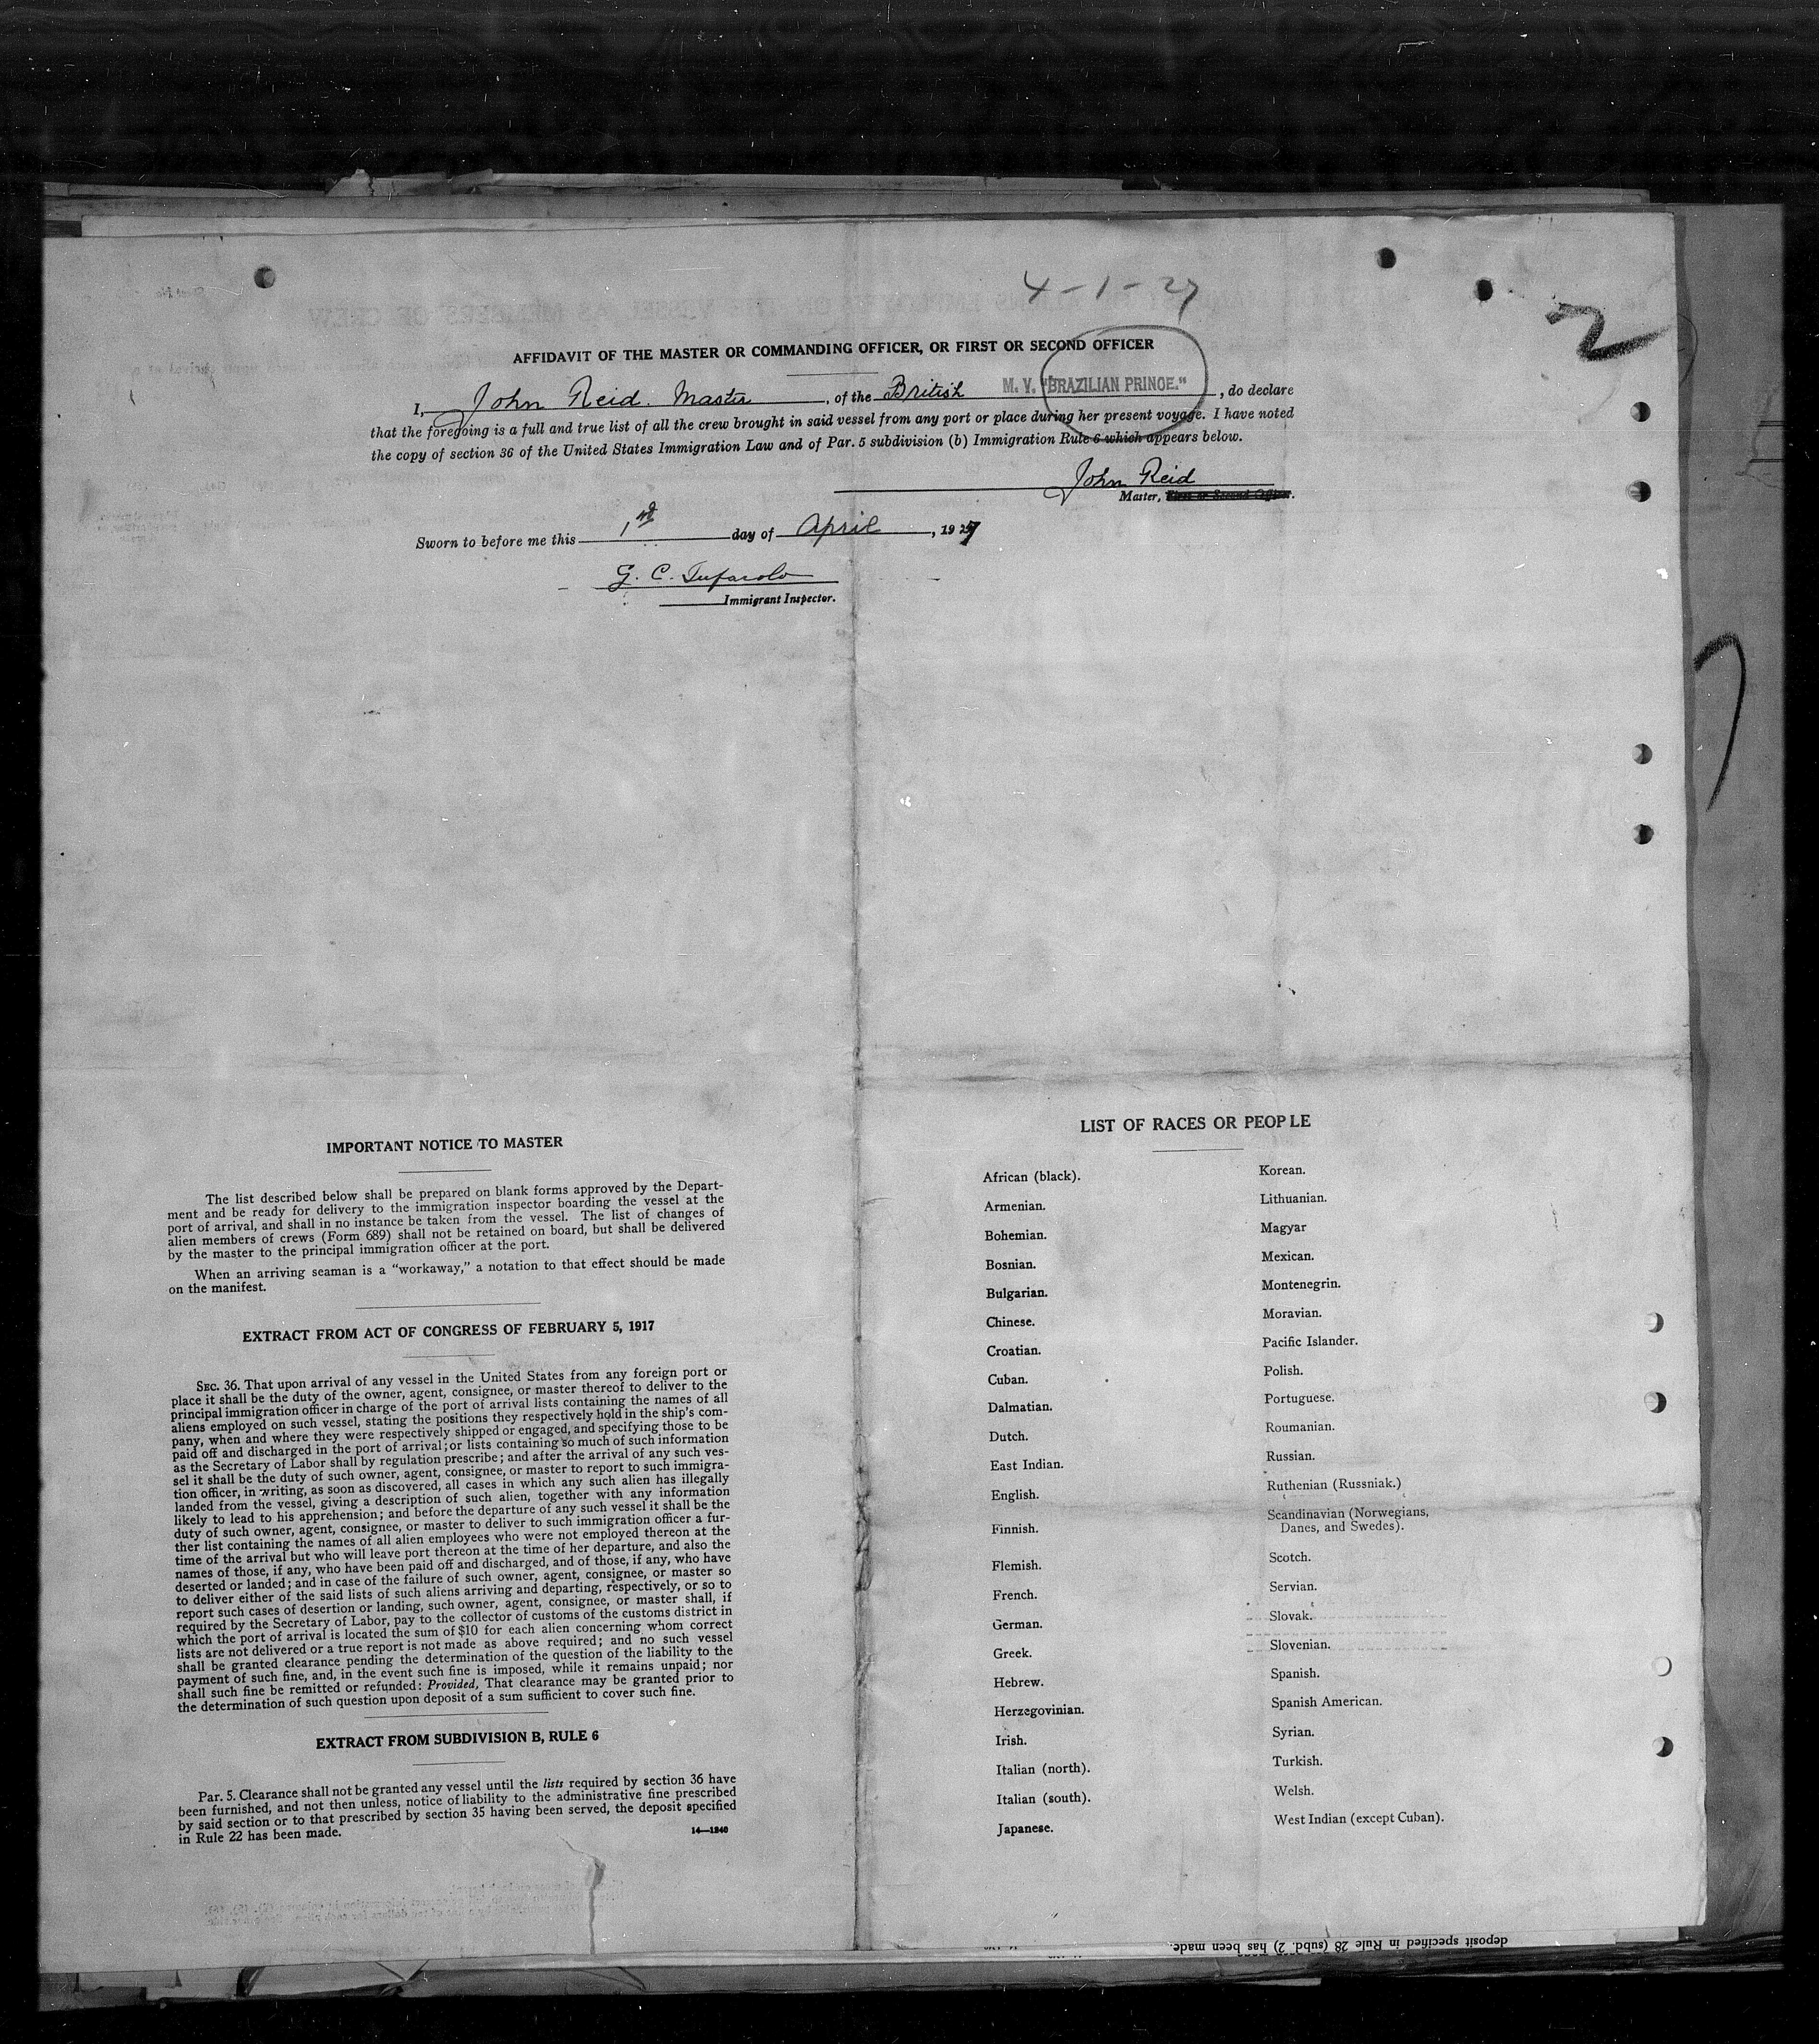 4-1-27
2
AFFIDAVIT OF THE MASTER OR COMMANDING OFFICER, OR FIRST OR SECOND OFFICER
I, John Reid. Master, of the British M. V. "BRAZILIAN PRINCE.", do declare
that the foregoing is a full and true list of all the crew brought in said vessel from any port or place during her present voyage. I have noted
the copy of section 36 of the United States Immigration Law and of Par. 5 subdivision (b) Immigration Rule 6 which appears below.
John Reid
Master, First or Second Officer.
Sworn to before me this 1st day of April, 1927
G. C. Tufarolo
Immigrant Inspector.
IMPORTANT NOTICE TO MASTER
The list described below shall be prepared on blank forms approved by the Depart-
ment and be ready for delivery to the immigration inspector boarding the vessel at the
port of arrival, and shall in no instance be taken from the vessel. The list of changes of
alien members of crews (Form 689) shall not be retained on board, but shall be delivered
by the master to the principal immigration officer at the port.
When an arriving seaman is a "workaway," a notation to that effect should be made
on the manifest.
EXTRACT FROM ACT OF CONGRESS OF FEBRUARY 5, 1917
SEC. 36. That upon arrival of any vessel in the United States from any foreign port or
place it shall be the duty of the owner, agent, consignee, or master thereof to deliver to the
principal immigration officer in charge of the port of arrival lists containing the names of all
aliens employed on such vessel, stating the positions they respectively hold in the ship's com-
pany, when and where they were respectively shipped or engaged, and specifying those to be
paid off and discharged in the port of arrival; or lists containing so much of such information
as the Secretary of Labor shall by regulation prescribe; and after the arrival of any such ves-
sel it shall be the duty of such owner, agent, consignee, or master to report to such immigra-
tion officer, in writing, as soon as discovered, all cases in which any such alien has illegally
landed from the vessel, giving a description of such alien, together with any information
likely to lead to his apprehension; and before the departure of any such vessel it shall be the
duty of such owner, agent, consignee, or master to deliver to such immigration officer a fur-
ther list containing the names of all alien employees who were not employed thereon at the
time of the arrival but who will leave port thereon at the time of her departure, and also the
names of those, if any, who have been paid off and discharged, and of those, if any, who have
deserted or landed; and in case of the failure of such owner, agent, consignee, or master so
to deliver either of the said lists of such aliens arriving and departing, respectively, or so to
report such cases of desertion or landing, such owner, agent, consignee, or master shall, if
required by the Secretary of Labor, pay to the collector of customs of the customs district in
which the port of arrival is located the sum of $10 for each alien concerning whom correct
lists are not delivered or a true report is not made as above required; and no such vessel
shall be granted clearance pending the determination of the question of the liability to the
payment of such fine, and, in the event such fine is imposed, while it remains unpaid; nor
shall such fine be remitted or refunded: Provided, That clearance may be granted prior to
the determination of such question upon deposit of a sum sufficient to cover such fine.
EXTRACT FROM SUBDIVISION B, RULE 6
Par. 5. Clearance shall not be granted any vessel until the lists required by section 36 have
been furnished, and not then unless, notice of liability to the administrative fine prescribed
by said section or to that prescribed by section 35 having been served, the deposit specified
in Rule 22 has been made.
14—1240
LIST OF RACES OR PEOPLE
African (black).
Armenian.
Bohemian.
Bosnian.
Bulgarian.
Chinese.
Croatian.
Cuban.
Dalmatian.
Dutch.
East Indian.
English.
Finnish.
Flemish.
French.
German.
Greek.
Hebrew.
Herzegovinian.
Irish.
Italian (north).
Italian (south).
Japanese.
Korean.
Lithuanian.
Magyar
Mexican.
Montenegrin.
Moravian.
Pacific Islander.
Polish.
Portuguese.
Roumanian.
Russian.
Ruthenian (Russniak.)
Scandinavian (Norwegians,
Danes, and Swedes).
Scotch.
Servian.
Slovak.
Slovenian.
Spanish.
Spanish American.
Syrian.
Turkish.
Welsh.
West Indian (except Cuban).
deposit specified in Rule 28 (subd. 2) has been made.